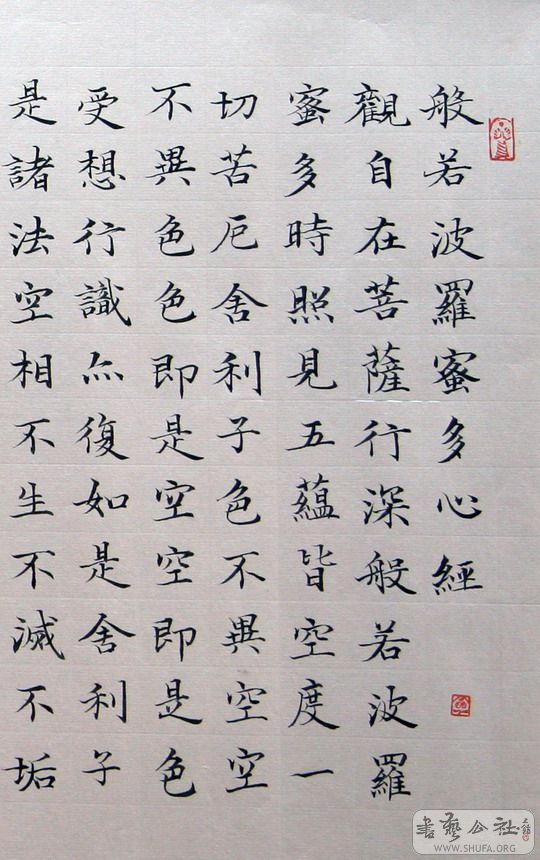 般若波羅蜜多心經
觀自在菩薩行深般若波羅
蜜多時照見五蘊皆空度一
切苦厄舍利子色不異空空
不異色色即是空空即是色
受想行識亦復如是舍利子
是諸法空相不生不滅不垢
書藝公社
WWW.SHUFA.ORG